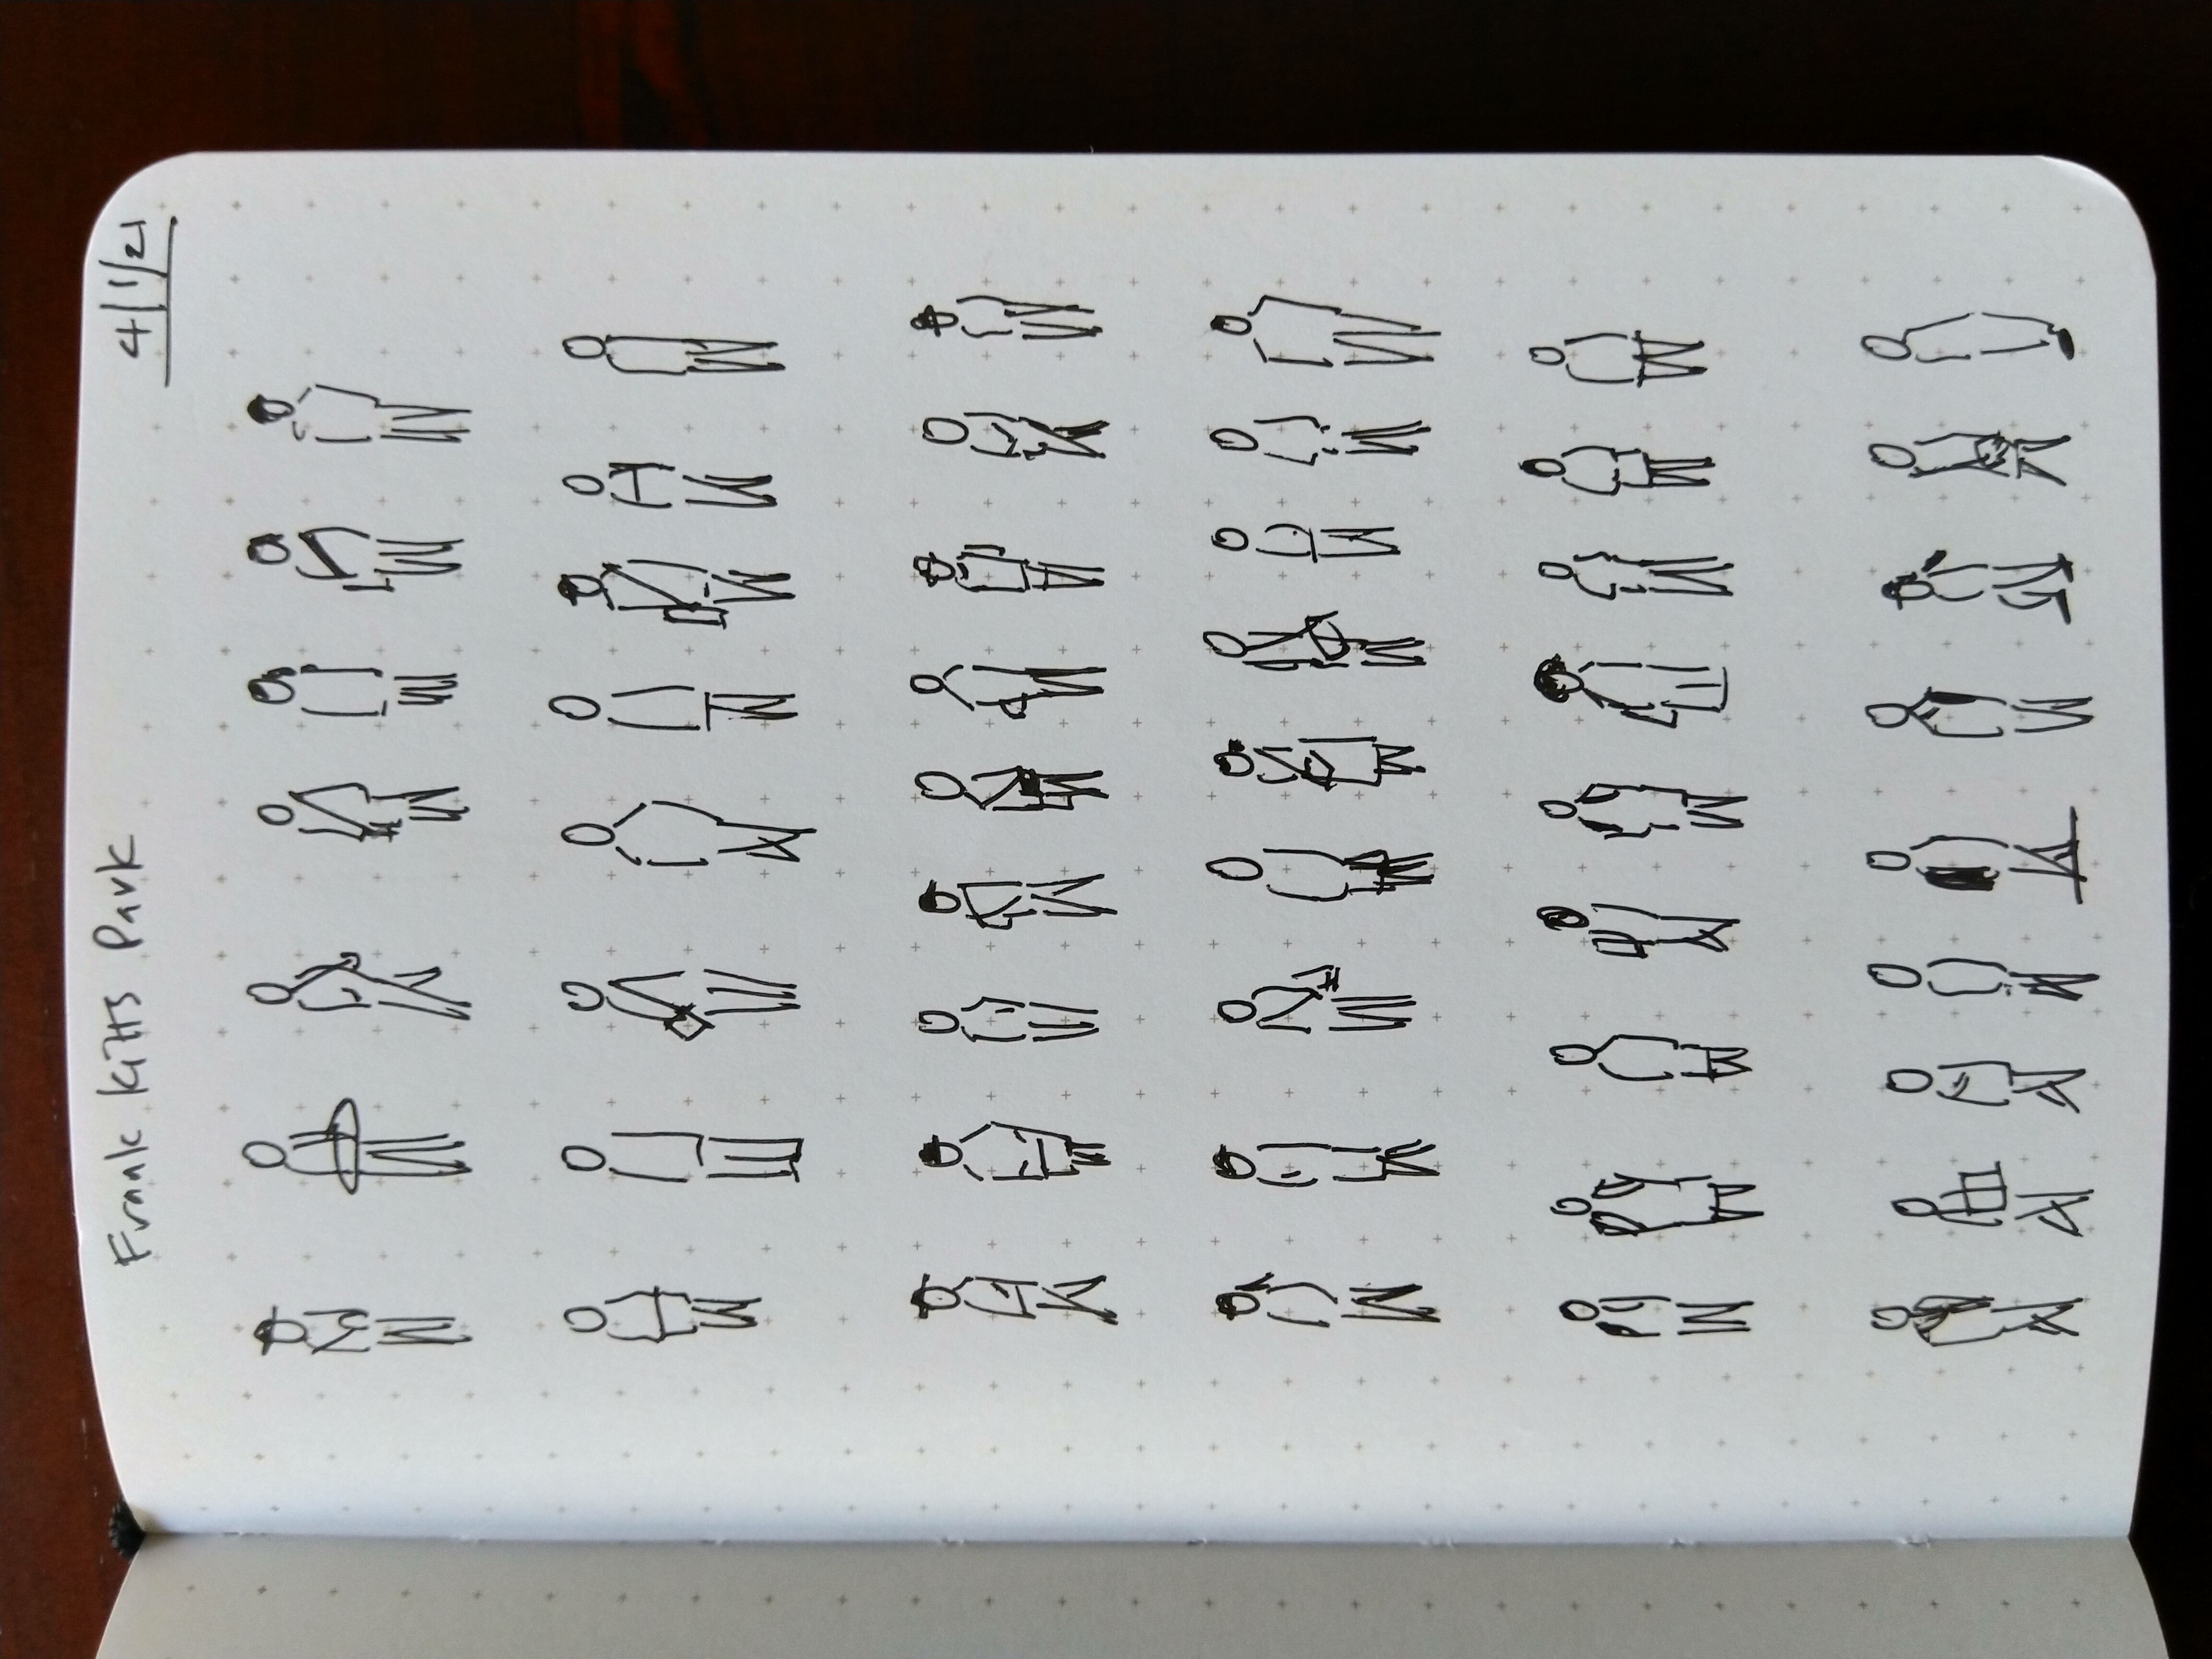 Frank Kitts Park
4/1/21